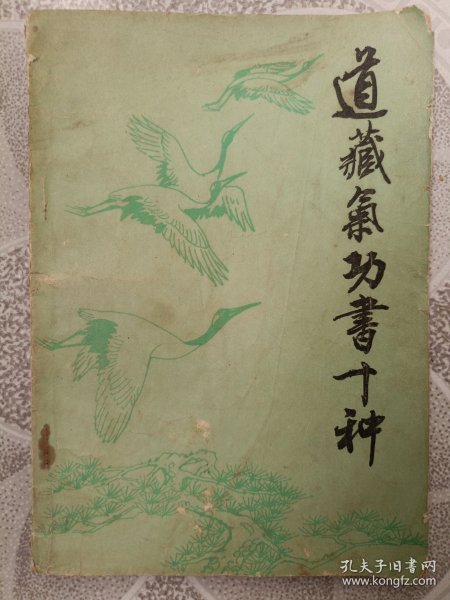 道藏氣功書十种
孔夫子旧书网
www.kongfz.com